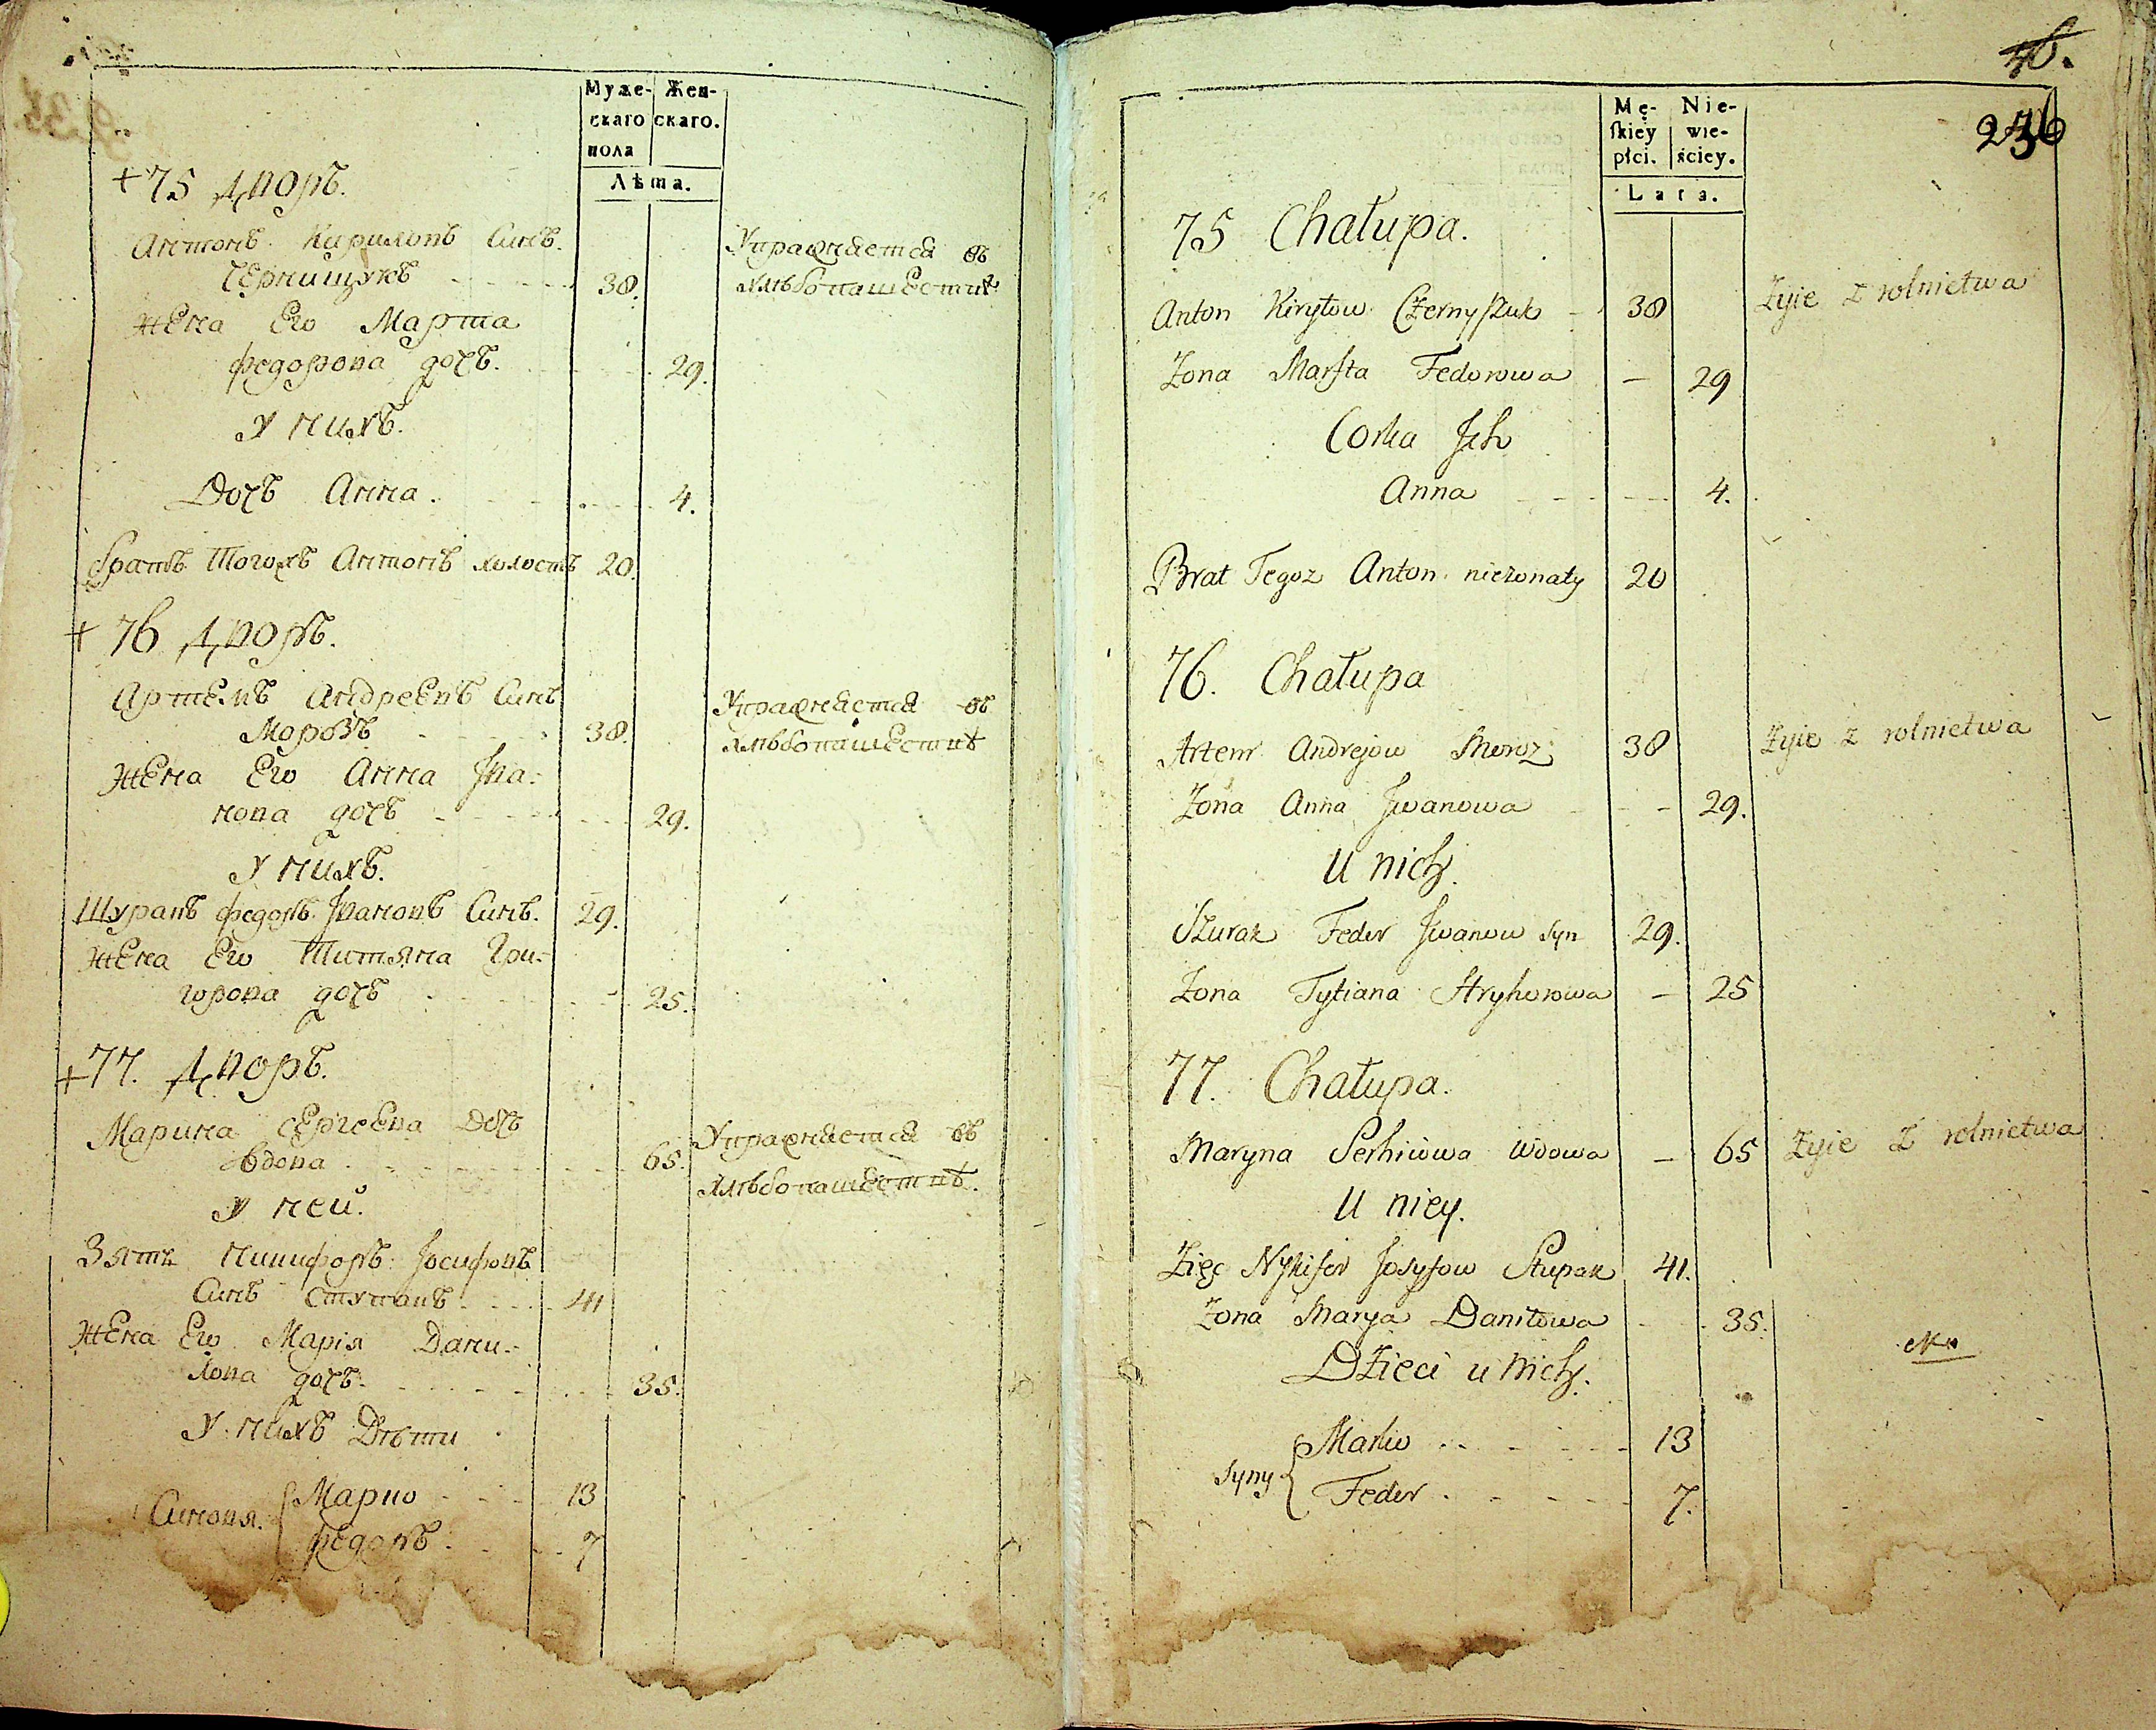 Муже-
скаго
пола
Жен-
скаго.
Лѣта.
+ 75 Дворъ.
Антонъ Кириловъ Сынъ.
Чернищукъ 38.
Упражняется въ
хлѣбопашествѣ
Жена Его Марта
Федорова дочь. 29.
У нихъ.
Дочь Анна. 4.
братъ Тогожъ Антонъ холостъ 20.
+ 76 Дворъ.
Артемъ Андреевъ Сынъ
Морозъ 38.
Упражняется въ
хлѣбопашествѣ
Жена Его Анна Ива-
нова дочь 29.
У нихъ.
Шуракъ Федоръ Ивановъ Сынъ. 29.
Жена Его Титяна Гри-
горова дочь 25.
+ 77. Дворъ.
Марина Сергеева Дочь
вдова 65.
Упражняется въ
хлѣбопашествѣ.
У ней.
Зять Никифоръ Іосифовъ
Сынъ Ступакъ 41
Жена Его Марія Дани-
лова дочь. 35.
У нихъ Дѣти
Сыновя. { Марко 13
Федоръ 7
46.
236
Mę-
ſkiey
płci.
Nie-
wie-
ściey.
Lata.
75 Chałupa.
Anton Kiryłow Czernyſzuk 38 Żyie z rolnictwa
Żona Marſta Fedorowa — 29
Corka Jch
Anna 4.
Brat Tegoz Anton nieżonaty 20
76. Chałupa
Artem Andrejow Moroz 38 Żyie z rolnictwa
Żona Anna Jwanowa - 29.
U nich.
Szurak Fedor Jwanow Syn 29.
Żona Tytiana Hryhorowa — 25
77. Chałupa.
Maryna Serhiiowa Wdowa — 65 Żyie z rolnictwa
U niey.
Zięć Nykifor Josyfow Stupak 41.
Żona Marya Daniłowa 35.
Dzieci u nich.
Syny { Marko 13
Fedor 7.